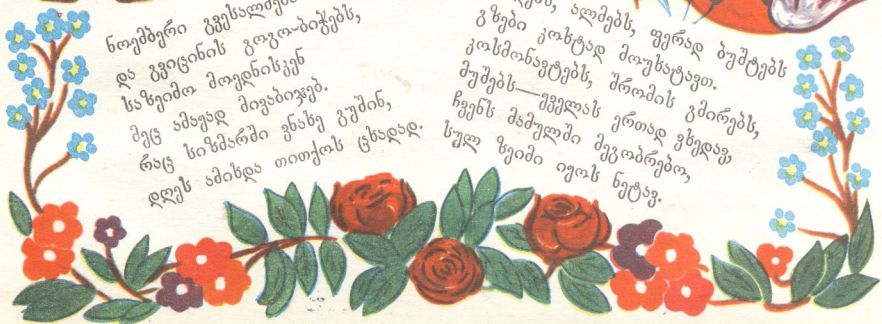 ნოემბერი გვესალმება
და გვიცინის გოგო-ბიჭებს,
საზეიმო მოედნისკენ
მეც ამაყად მივაბიჯებ.
რაც სიზმარში ვნახე გუშინ,
დღეს ამიხდა თითქოს ცხადად.
ალმებს, ფერად ბუშტებს
გზები კოხტად მოუხატავთ.
კოსმონავტებს, შრომის გმირებს,
მუშებს—ყველას ერთად ვხედავ,
ჩვენს მამულში მეგობრებო,
სულ ზეიმი იყოს ნეტავ.